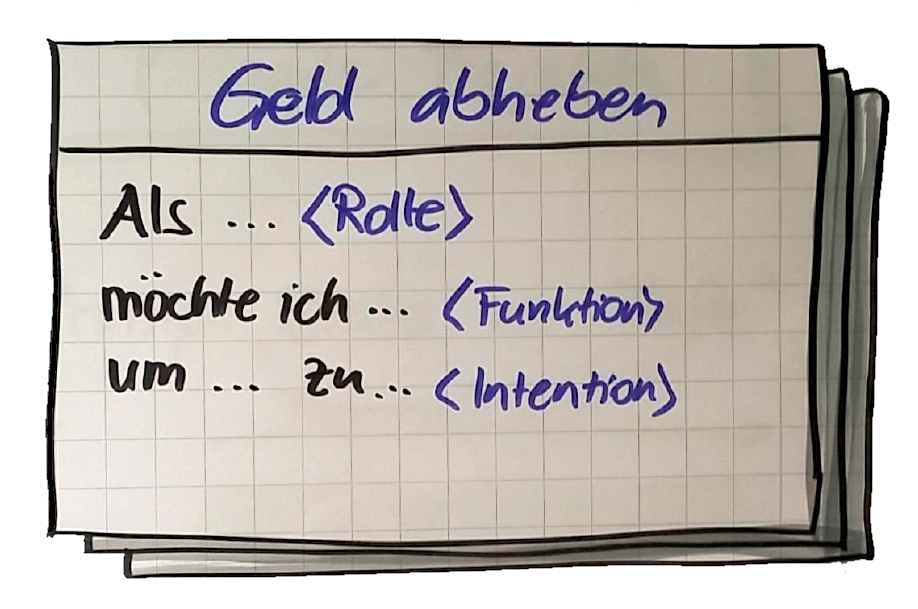 Geld abheben
Als ... <Rolle>
möchte ich ... <Funktion>
um ... zu... <Intention>